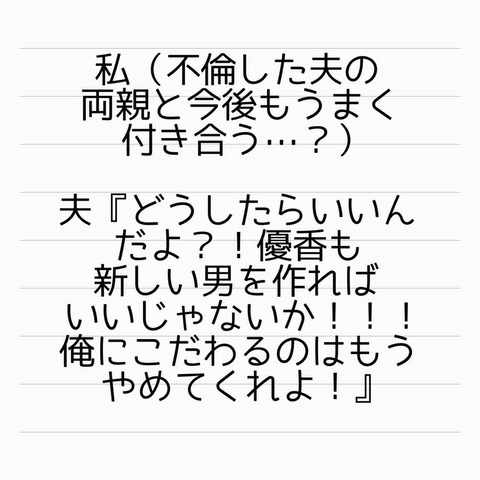 私（不倫した夫の
両親と今後もうまく
付き合う…？）
夫『どうしたらいいん
だよ？！優香も
新しい男を作れば
いいじゃないか！！！
俺にこだわるのはもう
やめてくれよ！』